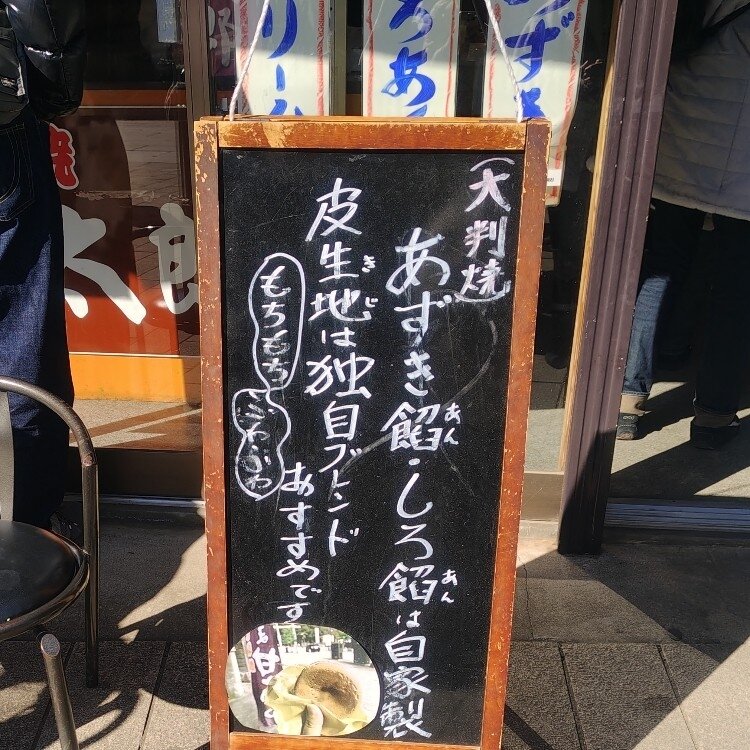 (大判焼)
あずき餡・しろ餡は自家製
あん
あん
皮生地は独自ブレンド
きじ
もちもち
ふわふわ
おすすめです
リーム
ろあ
ずき
焼
太郎
甘